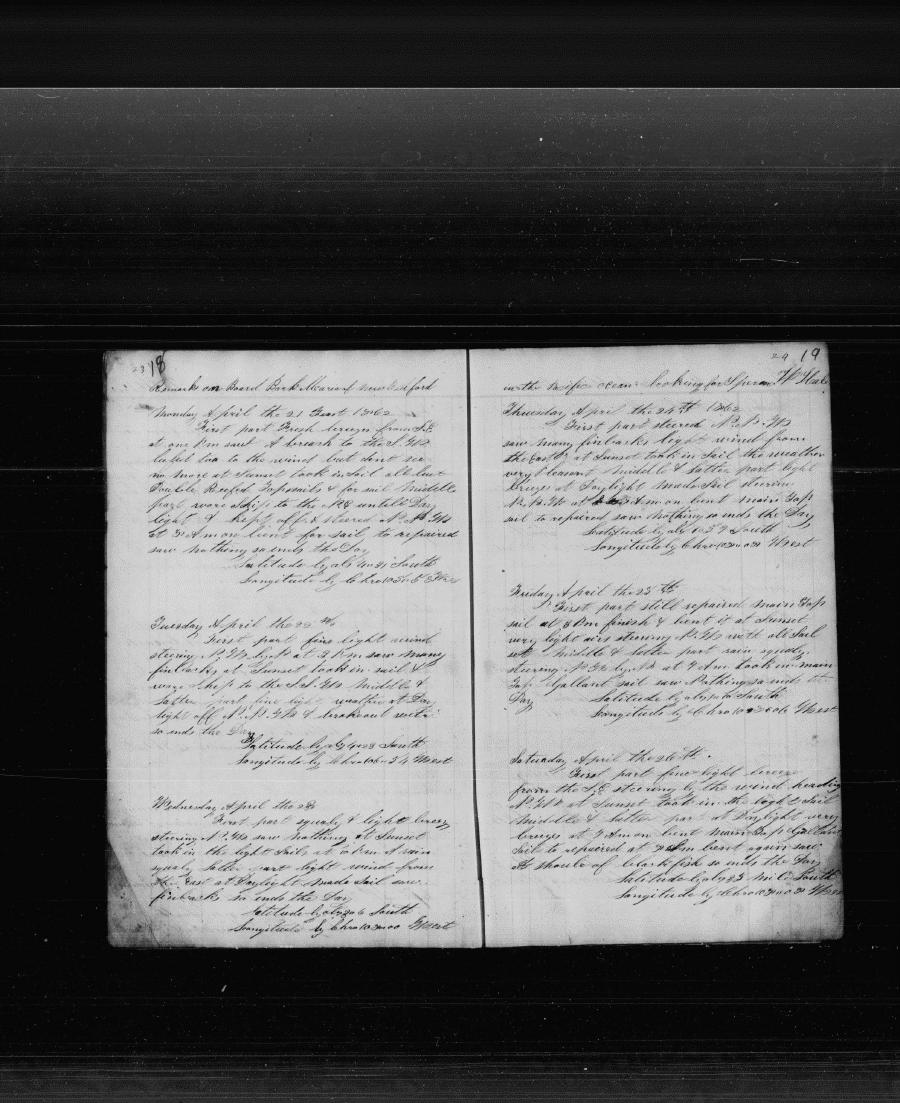 18
Remarks on Board Bark of New Bedford
Monday April the 21 1862
First part Fresh breeze from S.E.
at one P m saw A breach to the S. W
to the wind but dont see
no more at Sunset took in Sail all but
Double Reefed Topsails & for sail Middle
part wore Ship to the N E untill Day
light & kept off & steered N. N. W
at 7 A m bent for sail to repaired
saw nothing so ends the Day
Latitude by South
Longitude by Chro
Tuesday April the 22
First part fine light wind
steering N. W. by N at P m saw many
finbacks at Sunset took in sail &
wore Ship to the S. S. W Middle &
latter part fine light weather at Day
light off N. N. W & brokeout water
so ends the Day
Latitude by South
Longitude by Chro West
Wednesday April the 23
First part squaly & light breezes
steering N. W saw nothing at Sunset
took in the light Sails at P m A rain
squaly latter part light wind from
the East at Daylight made Sail saw
finbacks so ends the Day
Latitude by South
Longitude by Chro West
19
in the Pacific ocean looking for Sperm Whale
Thursday April the 24th 1862
First part steered N. N. W
saw many finbacks light wind from
the East at Sunset took in Sail the weather
very pleasant middle & latter part light
breezes at Daylight made Sail steering
N. N. W at A m on bent main Top
sail to repaired saw nothing so ends the Day
Latitude by South
Longitude by Chro West
Friday April the 25th
First part still repaired main Top
sail at P m finish & bent it at Sunset
very light airs steering N. W with all Sail
set middle & latter part rain squaly
steering N. W by N at A m took in main
Top Gallant sail saw Nothing so ends the
Day Latitude by South
Longitude by Chro West
Saturday April the 26th
First part fine light breeze
from the S. E steering by the wind heading
at Sunset took in the light Sail
Middle & latter part at Daylight very
breezes at A m on bent main Top Gallant
Sail to repaired at A m bent again saw
A shoal of blackfish so ends the Day
Latitude by South
Longitude by Chro West